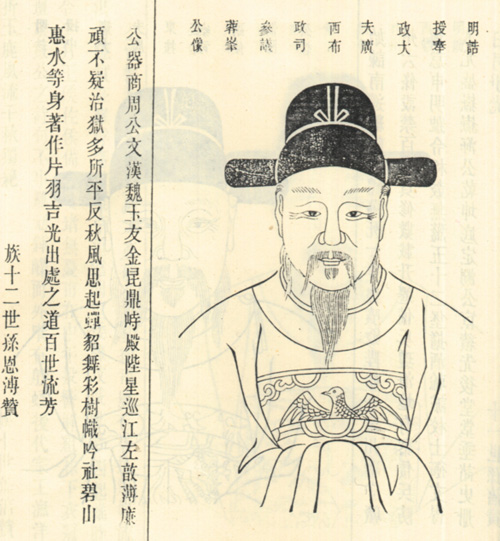 明誥
授奉
政大
夫廣
西布
政司
參議
蓉峯
公像
公器商周公文漢魏玉友金昆鼎峙殿陛星巡江左敦薄廉
頑不疑治獄多所平反秋風思起蟬貂舞彩樹幟吟社碧山
惠水等身著作片羽吉光出處之道百世流芳
族十二世孫恩溥贊